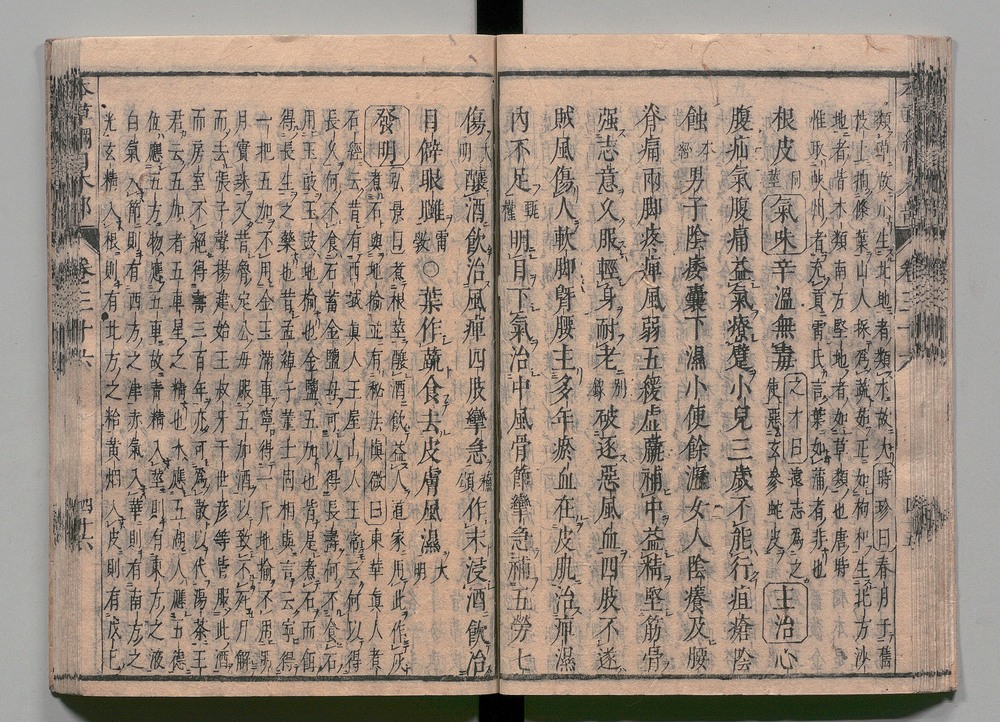 類草故小生北地者類木故大時珍曰春月于舊
枝上抽條葉山人採爲蔬茹正如枸杞生北方沙
地者皆木類南方堅地者如草類也唐時
惟取峽州者充貢雷氏言葉如蒲者非也
根皮同莖氣味辛溫無毒之才曰遠志爲之使惡玄參蛇皮主治心
腹疝氣腹痛益氣療躄小兒三歲不能行疽瘡陰
蝕本經男子陰痿囊下濕小便餘瀝女人陰癢及腰
脊痛兩脚疼痺風弱五緩虛羸補中益精堅筋骨
强志意久服輕身耐老別錄破逐惡風血四肢不遂
賊風傷人軟脚䐴腰主多年瘀血在皮肌治痺濕
內不足甄權明目下氣治中風骨節攣急補五勞七
傷大明釀酒飲治風痺四肢攣急蘇頌作末浸酒飲治
目僻眼䀮雷斅○葉作蔬食去皮膚風濕大明
發明弘景曰煮根莖釀酒飲益人道家用此作灰
煮石與地榆並有秘法愼微曰東華眞人煮
石經云昔有西域眞人王屋山人王常云何以得
長久何不食石蓄金鹽母何以得長壽何不食石
用玉豉玉豉地榆也金鹽五加也皆是煮石而餌
得長生之藥也昔孟綽子董士固相與言云寧得
一把五加不用金玉滿車寧得一斤地榆不用明
月寶珠又昔魯定公母服五加酒以致不死尸解
而去張子聲楊建始王叔牙于世彥等皆服此酒
而房室不絕得壽三百年亦可爲散以代湯茶王
君云五加者五車星之精也水應五湖人應五德
位應五方物應五車故靑精入莖則有東方之液
白氣入節則有西方之津赤氣入華則有南方之
光玄精入根則有北方之飴黃烟入皮則有戊己
卷三十六
四十六